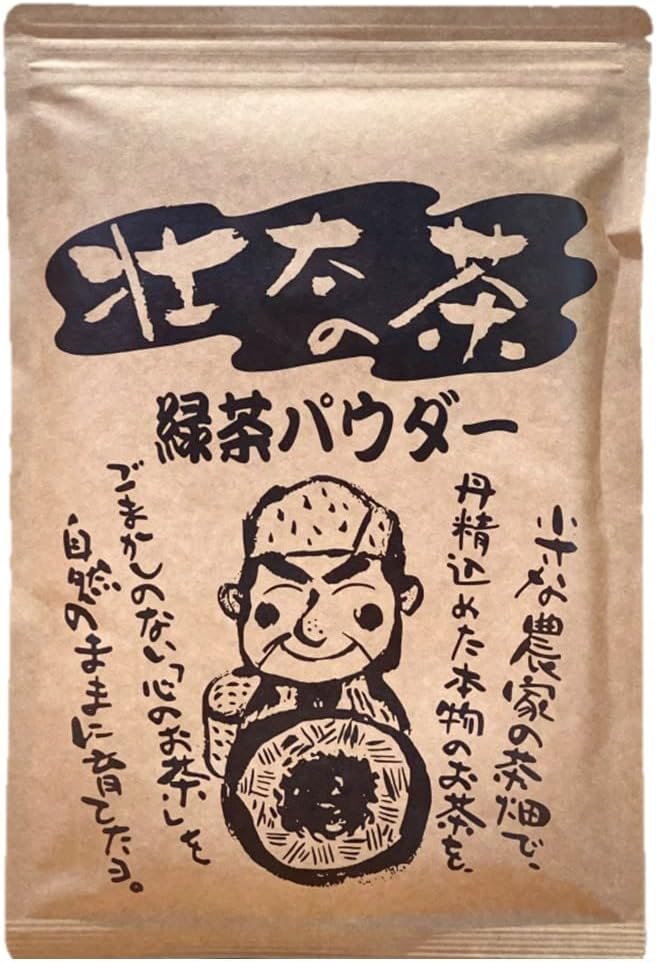 壮太の茶
緑茶パウダー
小さな農家の茶畑で、
丹精込めた本物のお茶を、
ごまかしのない「心のお茶」を
自然のままに育てたヨ。